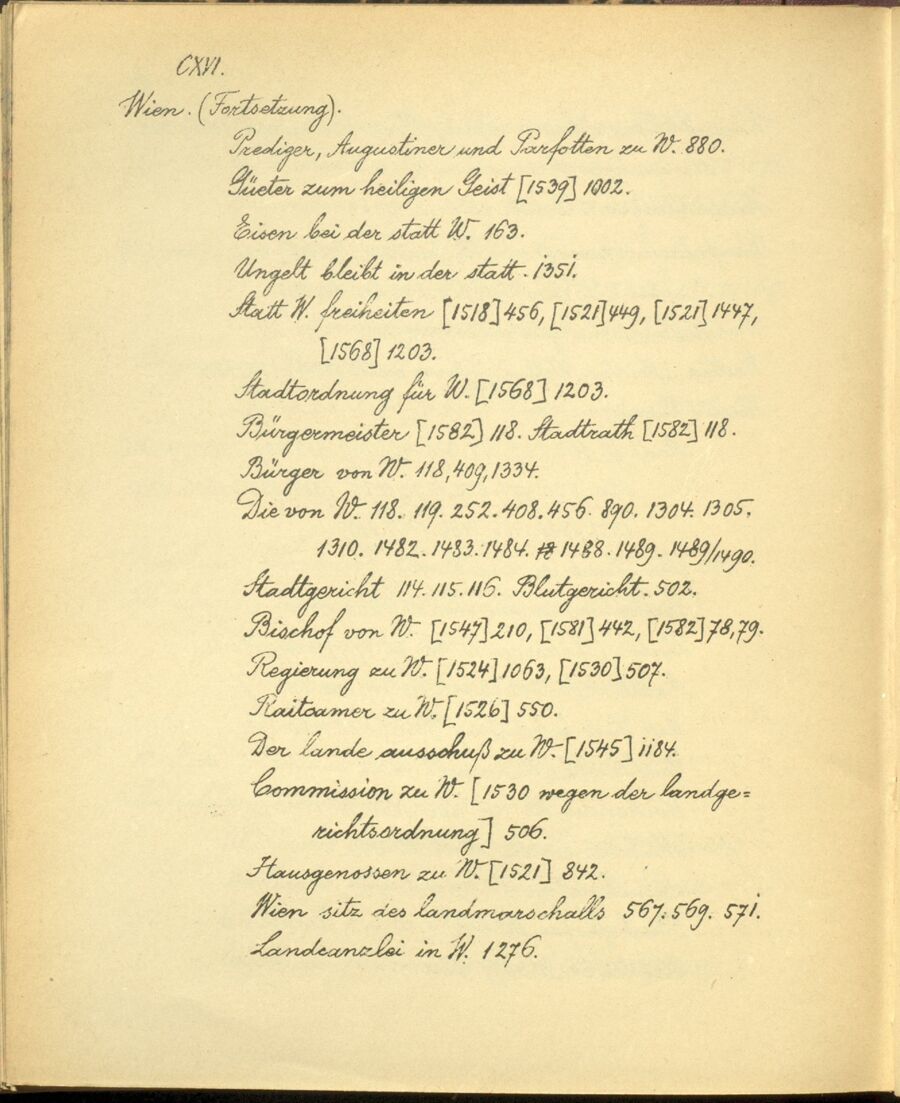 CXVI.
Wien. (Fortsetzung).
Prediger, Augustiner und Parfotten zu W. 880.
Güeter zum heiligen Geist [1539] 1002.
Eisen bei der statt W. 163.
Ungelt bleibt in der statt. 1351.
Statt W. freiheiten [1518] 456, [1521] 449, [1521] 1447,
[1568] 1203.
Stadtordnung für W. [1568] 1203.
Bürgermeister [1582] 118. Stadtrath [1582] 118.
Bürger von W. 118, 409, 1334.
Die von W. 118. 119. 252. 408. 456. 890. 1304. 1305.
1310. 1482. 1483. 1484. 1488. 1489. 1489/1490.
Stadtgericht 114. 115. 116. Blutgericht. 502.
Bischof von W. [1547] 210, [1581] 442, [1582] 78, 79.
Regierung zu W. [1524] 1063, [1530] 507.
Raitcamer zu W. [1526] 550.
Der lande ausschuß zu W. [1545] 1184.
Commission zu W. [1530 wegen der landge=
richtsordnung] 506.
Hausgenossen zu W. [1521] 842.
Wien sitz des landmarschalls 567. 569. 571.
Landcanzlei in W. 1276.